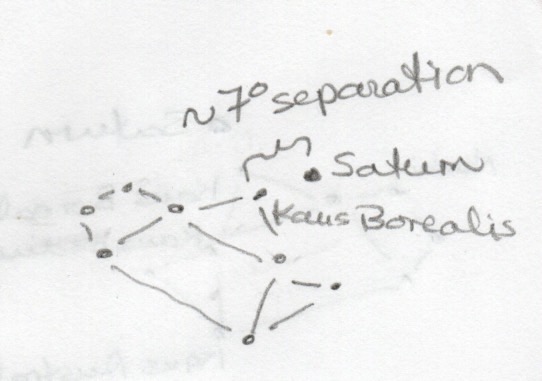 ~7° separation
Saturn
Kaus Borealis